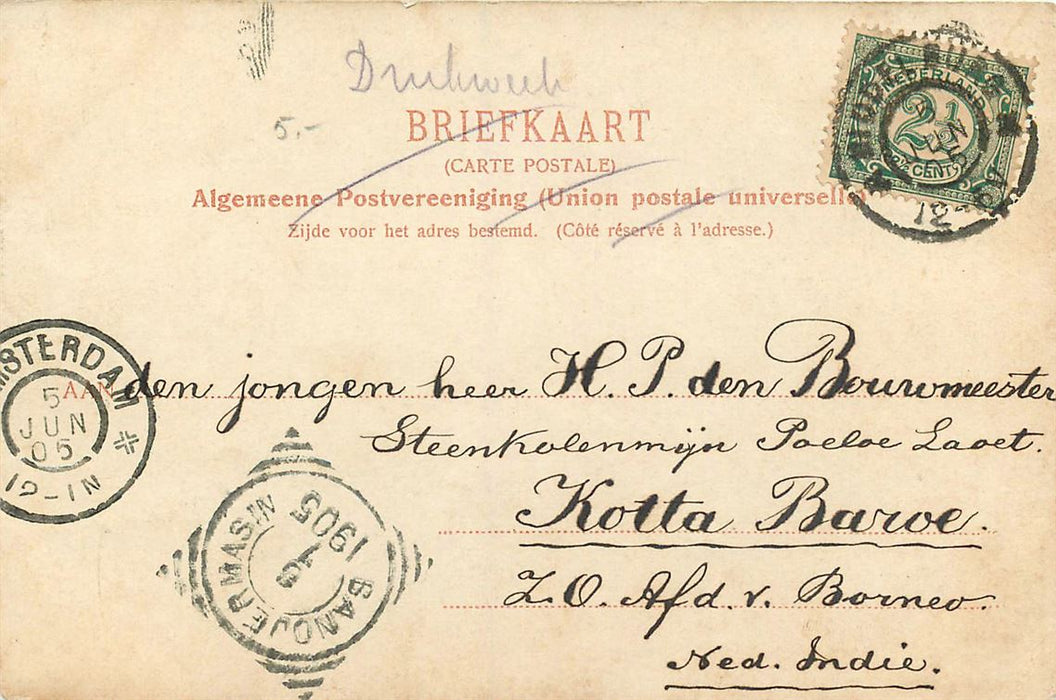 Drukwerk
5.-
BRIEFKAART
(CARTE POSTALE)
Algemeene Postvereeniging (Union postale universelle)
Zijde voor het adres bestemd. (Côté réservé à l'adresse.)
NEDERLAND
2½
2½ CENT
AMSTERDAM
5
JUN
05
12-1N
AAN den jongen heer H. P. den Bouwmeester
Steenkolenmijn Poeloe Laoet.
Kotta Baroe.
Z.O. Afd. v. Borneo.
Ned. Indie.
BANDJERMASIN
1905